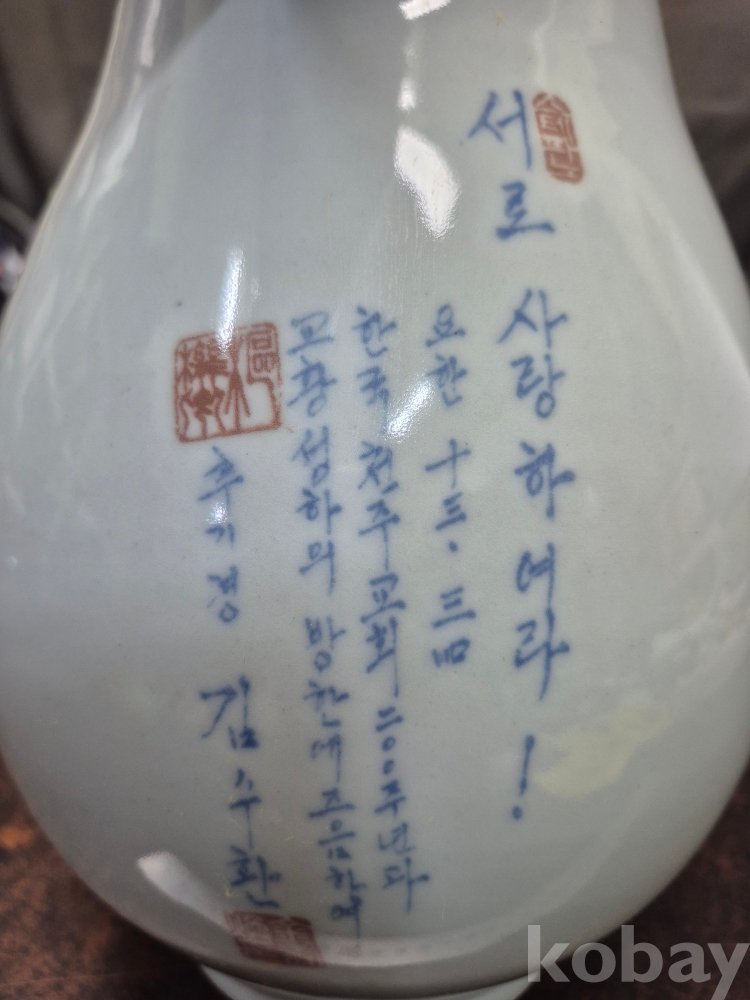 서로 사랑하여라!
요한 十三. 三四
한국 천주교회 二○○주년과
교황 성하의 방한에 즈음하여
추기경 김수환
kobay